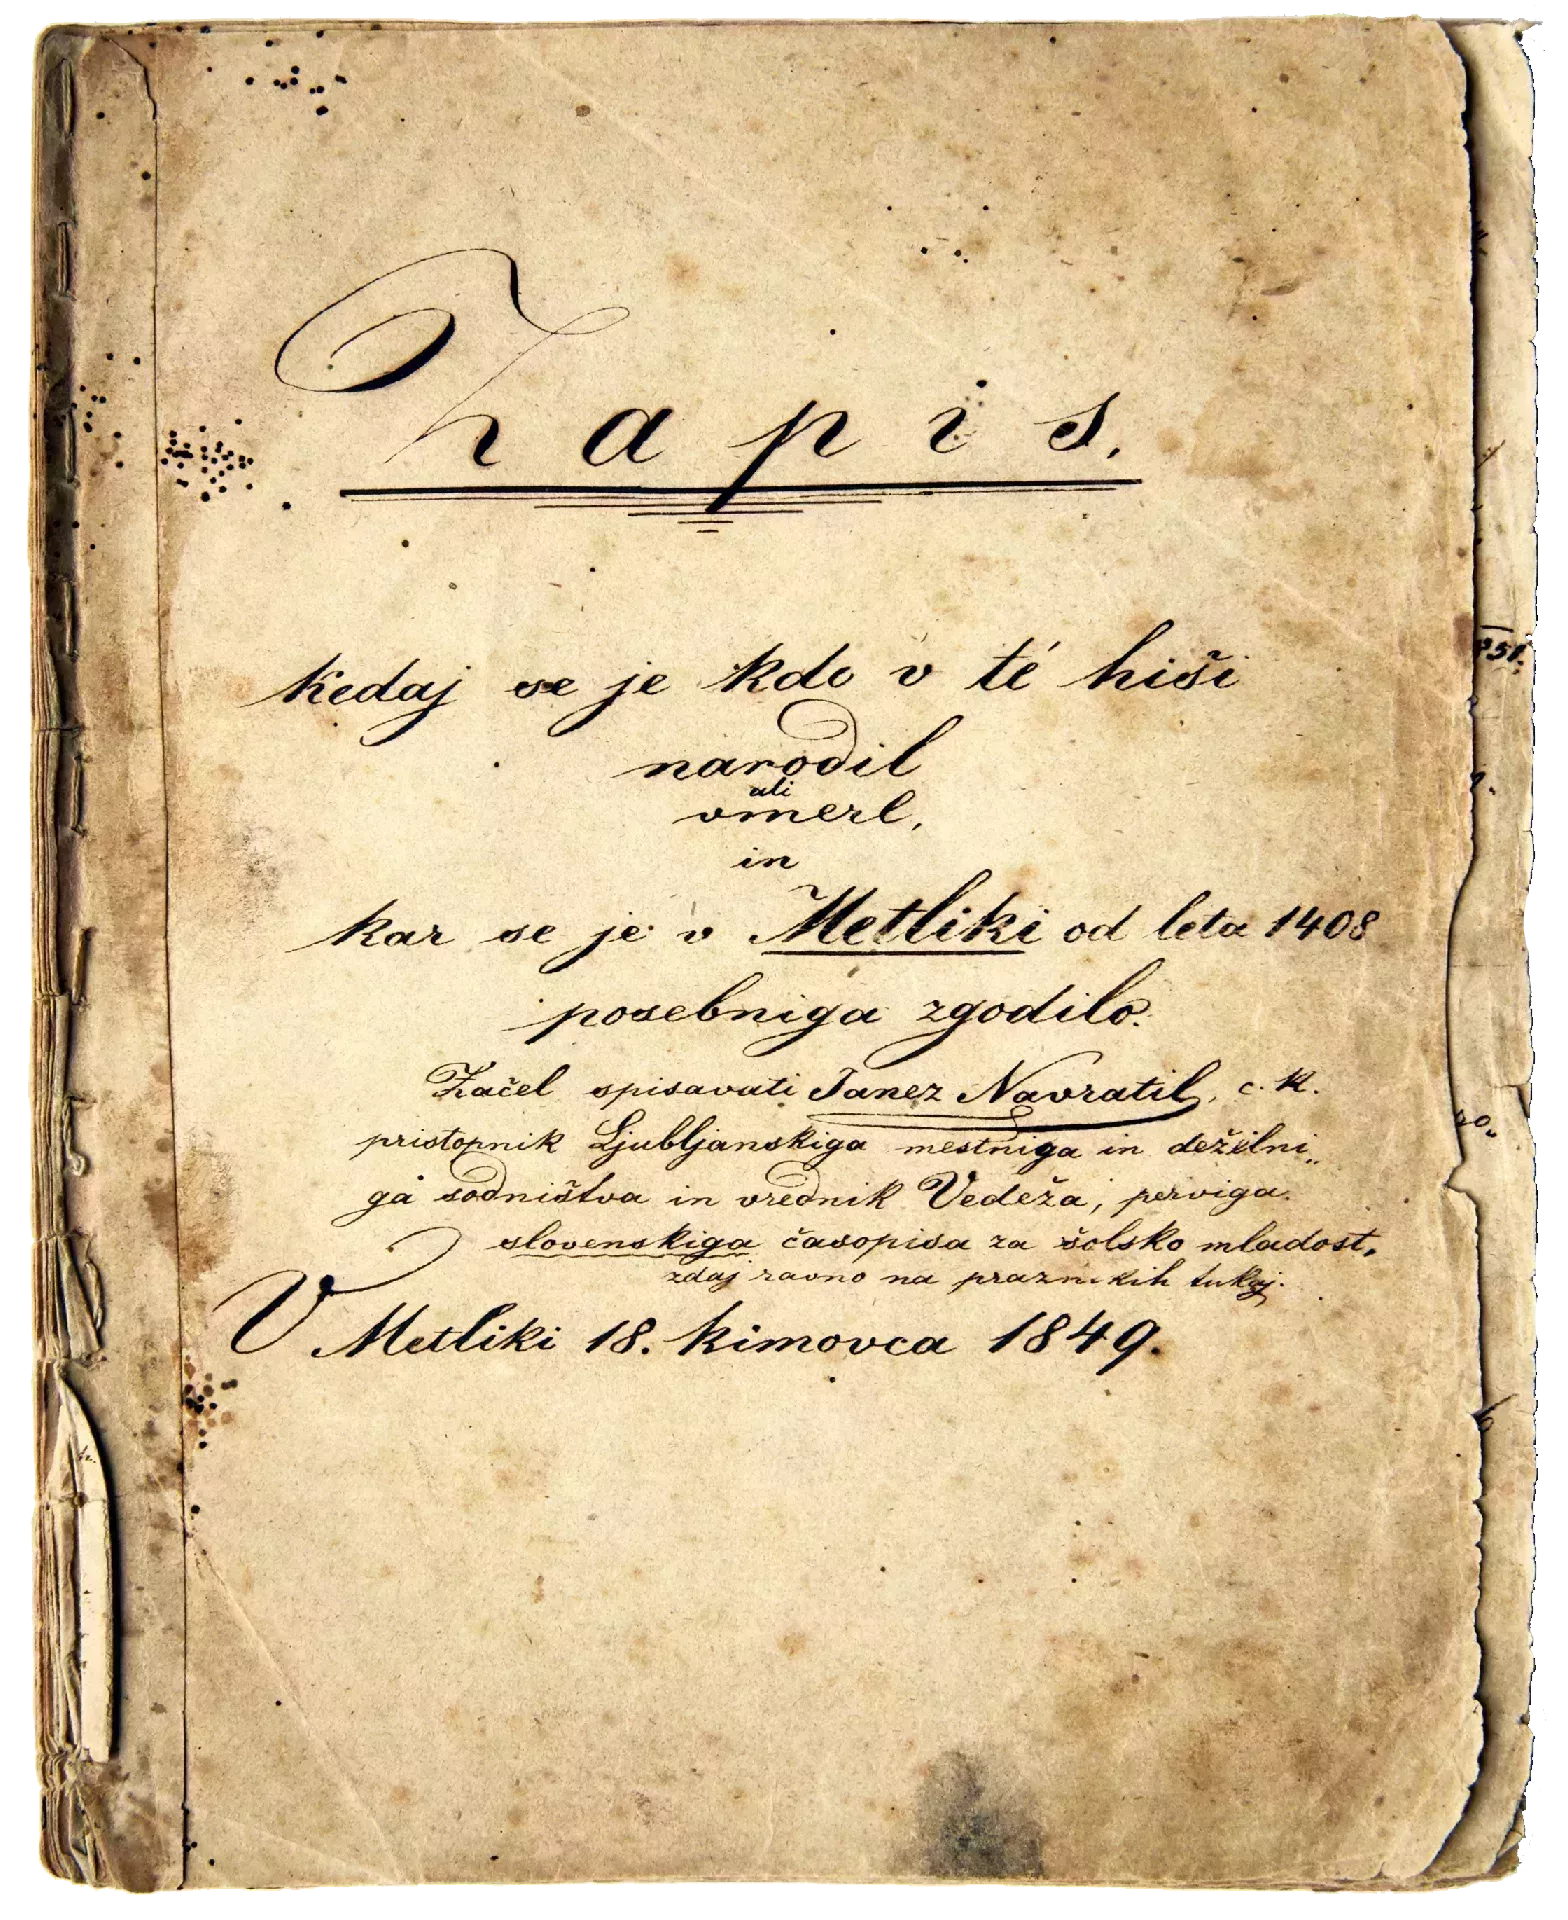 Zapis.
kedaj se je kdo v té hiši
narodil
ali
vmerl,
in
kar se je v Metliki od leta 1408
posebniga zgodilo.
Začel spisavati Janez Navratil, c. k.
pristopnik Ljubljanskiga mestniga in deželni„
ga sodništva in vrednik Vedeža, perviga
slovenskiga časopisa za šolsko mladost,
zdaj ravno na praznikih tukaj.
V Metliki 18. kimovca 1849.